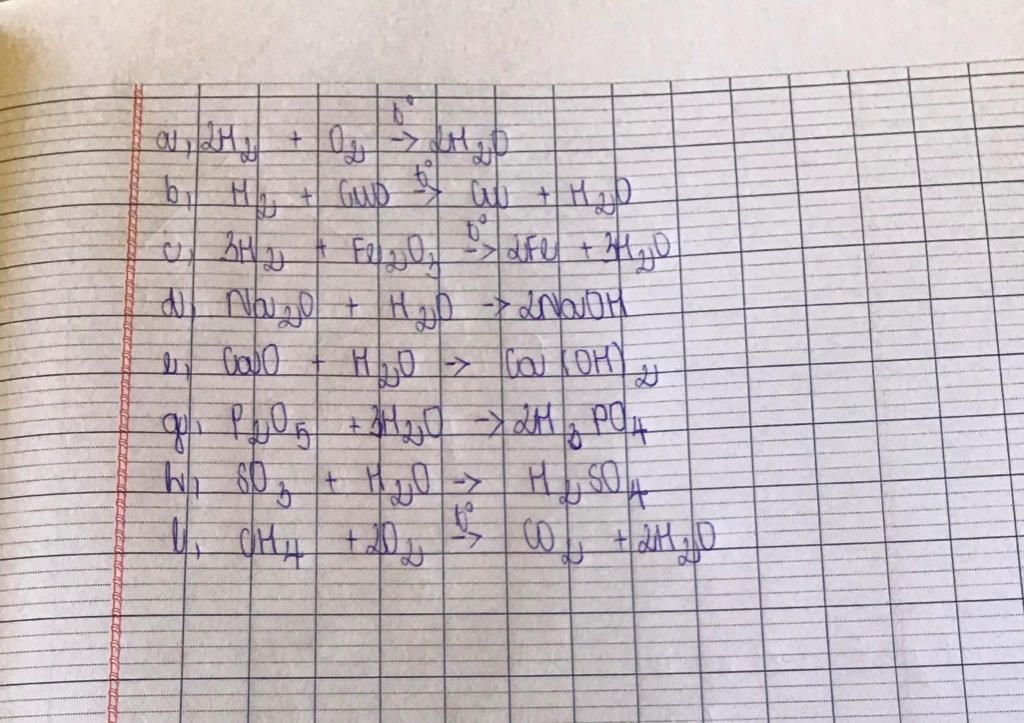 a, 2H₂ + O₂ →(t°) 2H₂O
b, H₂ + CuO →(t°) Cu + H₂O
c, 3H₂ + Fe₂O₃ →(t°) 2Fe + 3H₂O
d, Na₂O + H₂O → 2NaOH
e, CaO + H₂O → Ca(OH)₂
g, P₂O₅ + 3H₂O → 2H₃PO₄
h, SO₃ + H₂O → H₂SO₄
y, CH₄ + 2O₂ →(t°) CO₂ + 2H₂O